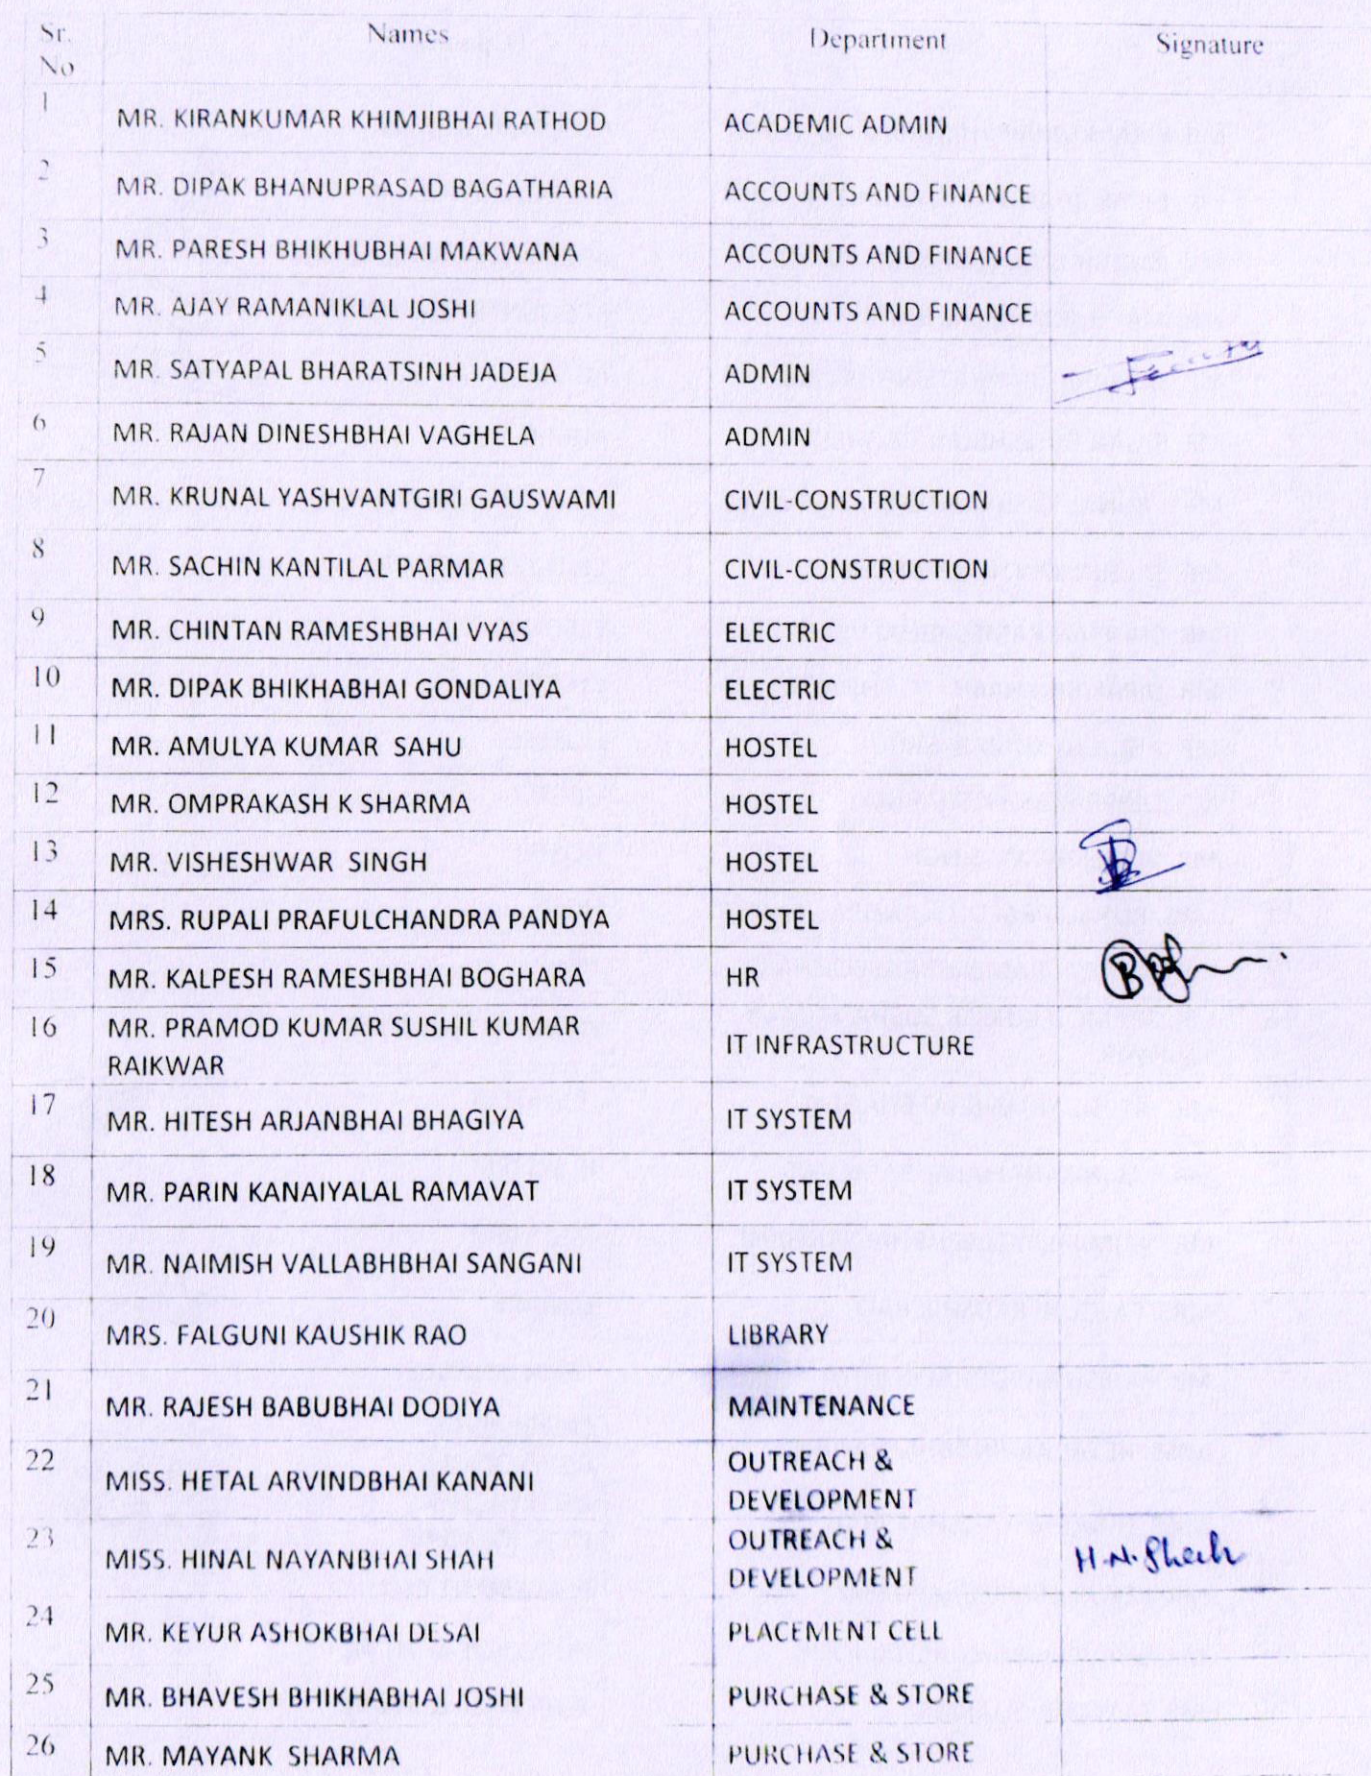 Sr. No Names Department Signature
1 MR. KIRANKUMAR KHIMJIBHAI RATHOD ACADEMIC ADMIN
2 MR. DIPAK BHANUPRASAD BAGATHARIA ACCOUNTS AND FINANCE
3 MR. PARESH BHIKHUBHAI MAKWANA ACCOUNTS AND FINANCE
4 MR. AJAY RAMANIKLAL JOSHI ACCOUNTS AND FINANCE
5 MR. SATYAPAL BHARATSINH JADEJA ADMIN
6 MR. RAJAN DINESHBHAI VAGHELA ADMIN
7 MR. KRUNAL YASHVANTGIRI GAUSWAMI CIVIL-CONSTRUCTION
8 MR. SACHIN KANTILAL PARMAR CIVIL-CONSTRUCTION
9 MR. CHINTAN RAMESHBHAI VYAS ELECTRIC
10 MR. DIPAK BHIKHABHAI GONDALIYA ELECTRIC
11 MR. AMULYA KUMAR SAHU HOSTEL
12 MR. OMPRAKASH K SHARMA HOSTEL
13 MR. VISHESHWAR SINGH HOSTEL
14 MRS. RUPALI PRAFULCHANDRA PANDYA HOSTEL
15 MR. KALPESH RAMESHBHAI BOGHARA HR
16 MR. PRAMOD KUMAR SUSHIL KUMAR
RAIKWAR IT INFRASTRUCTURE
17 MR. HITESH ARJANBHAI BHAGIYA IT SYSTEM
18 MR. PARIN KANAIYALAL RAMAVAT IT SYSTEM
19 MR. NAIMISH VALLABHBHAI SANGANI IT SYSTEM
20 MRS. FALGUNI KAUSHIK RAO LIBRARY
21 MR. RAJESH BABUBHAI DODIYA MAINTENANCE
22 MISS. HETAL ARVINDBHAI KANANI OUTREACH &
DEVELOPMENT
23 MISS. HINAL NAYANBHAI SHAH OUTREACH &
DEVELOPMENT H.N.Shah
24 MR. KEYUR ASHOKBHAI DESAI PLACEMENT CELL
25 MR. BHAVESH BHIKHABHAI JOSHI PURCHASE & STORE
26 MR. MAYANK SHARMA PURCHASE & STORE